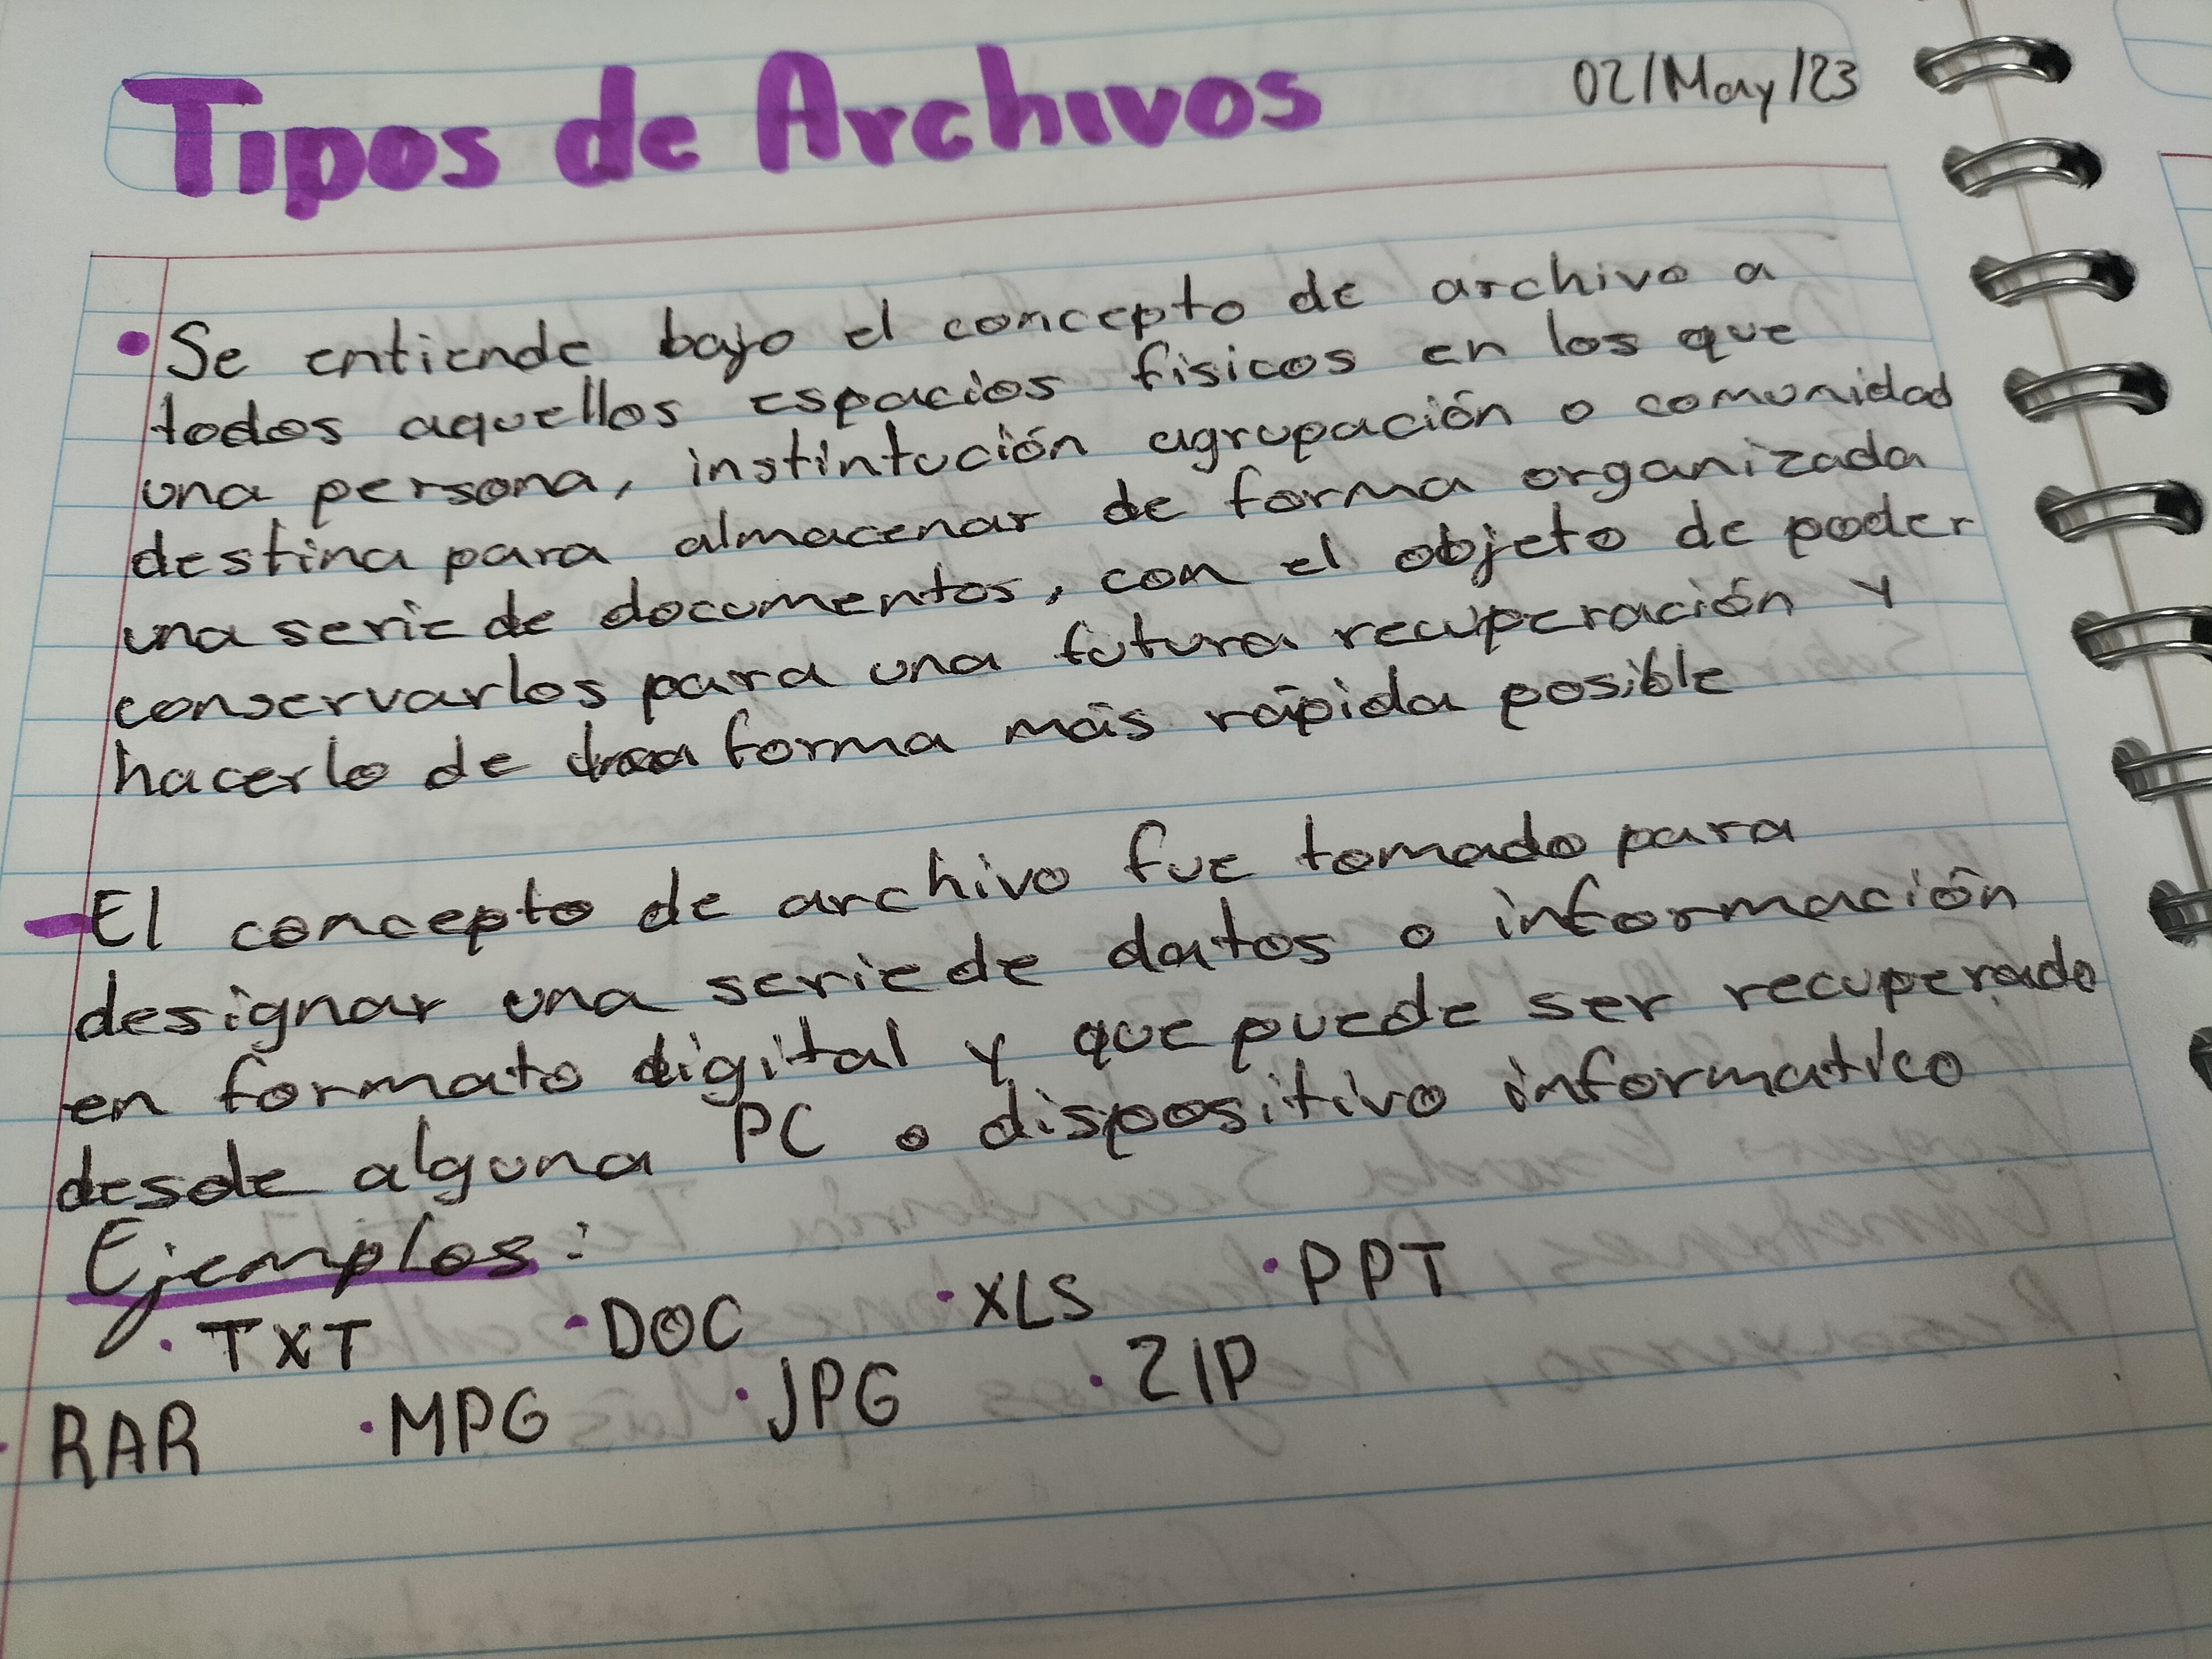 Tipos de Archivos
02/May/23
• Se entiende bajo el concepto de archivo a
todos aquellos espacios físicos en los que
una persona, instintución agrupación o comunidad
destina para almacenar de forma organizada
una serie de documentos, con el objeto de poder
conservarlos para una futura recuperación y
hacerlo de forma más rápida posible
- El concepto de archivo fue tomado para
designar una serie de datos o información
en formato digital y que puede ser recuperado
desde alguna PC o dispositivo informatico
Ejemplos:
· TXT · DOC · XLS · PPT
· RAR · MPG · JPG · ZIP